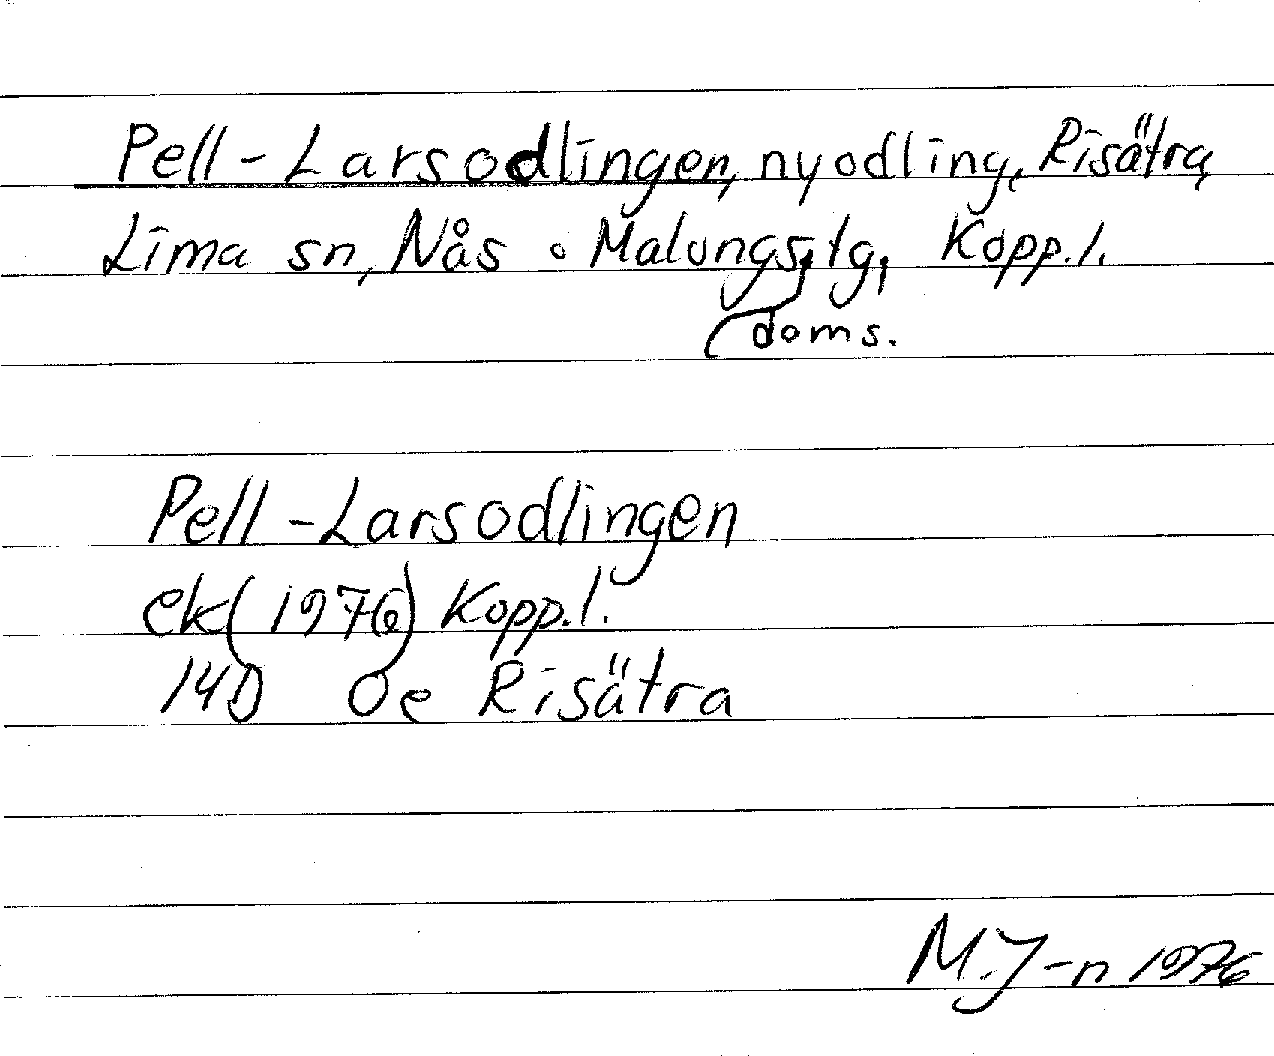 Pell-Larsodlingen, nyodling, Risätra,
Lima sn, Nås o Malungs, tg, Kopp.l.
doms.
Pell-Larsodlingen
ek (1976) Kopp.l.
14D Öe Risätra
M.J-n 1976